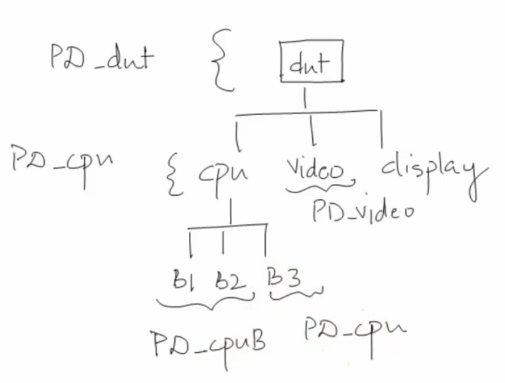 PD_dut { dut
PD_cpu { cpu video display
PD_video
B1 B2 B3
PD_cpuB PD_cpu